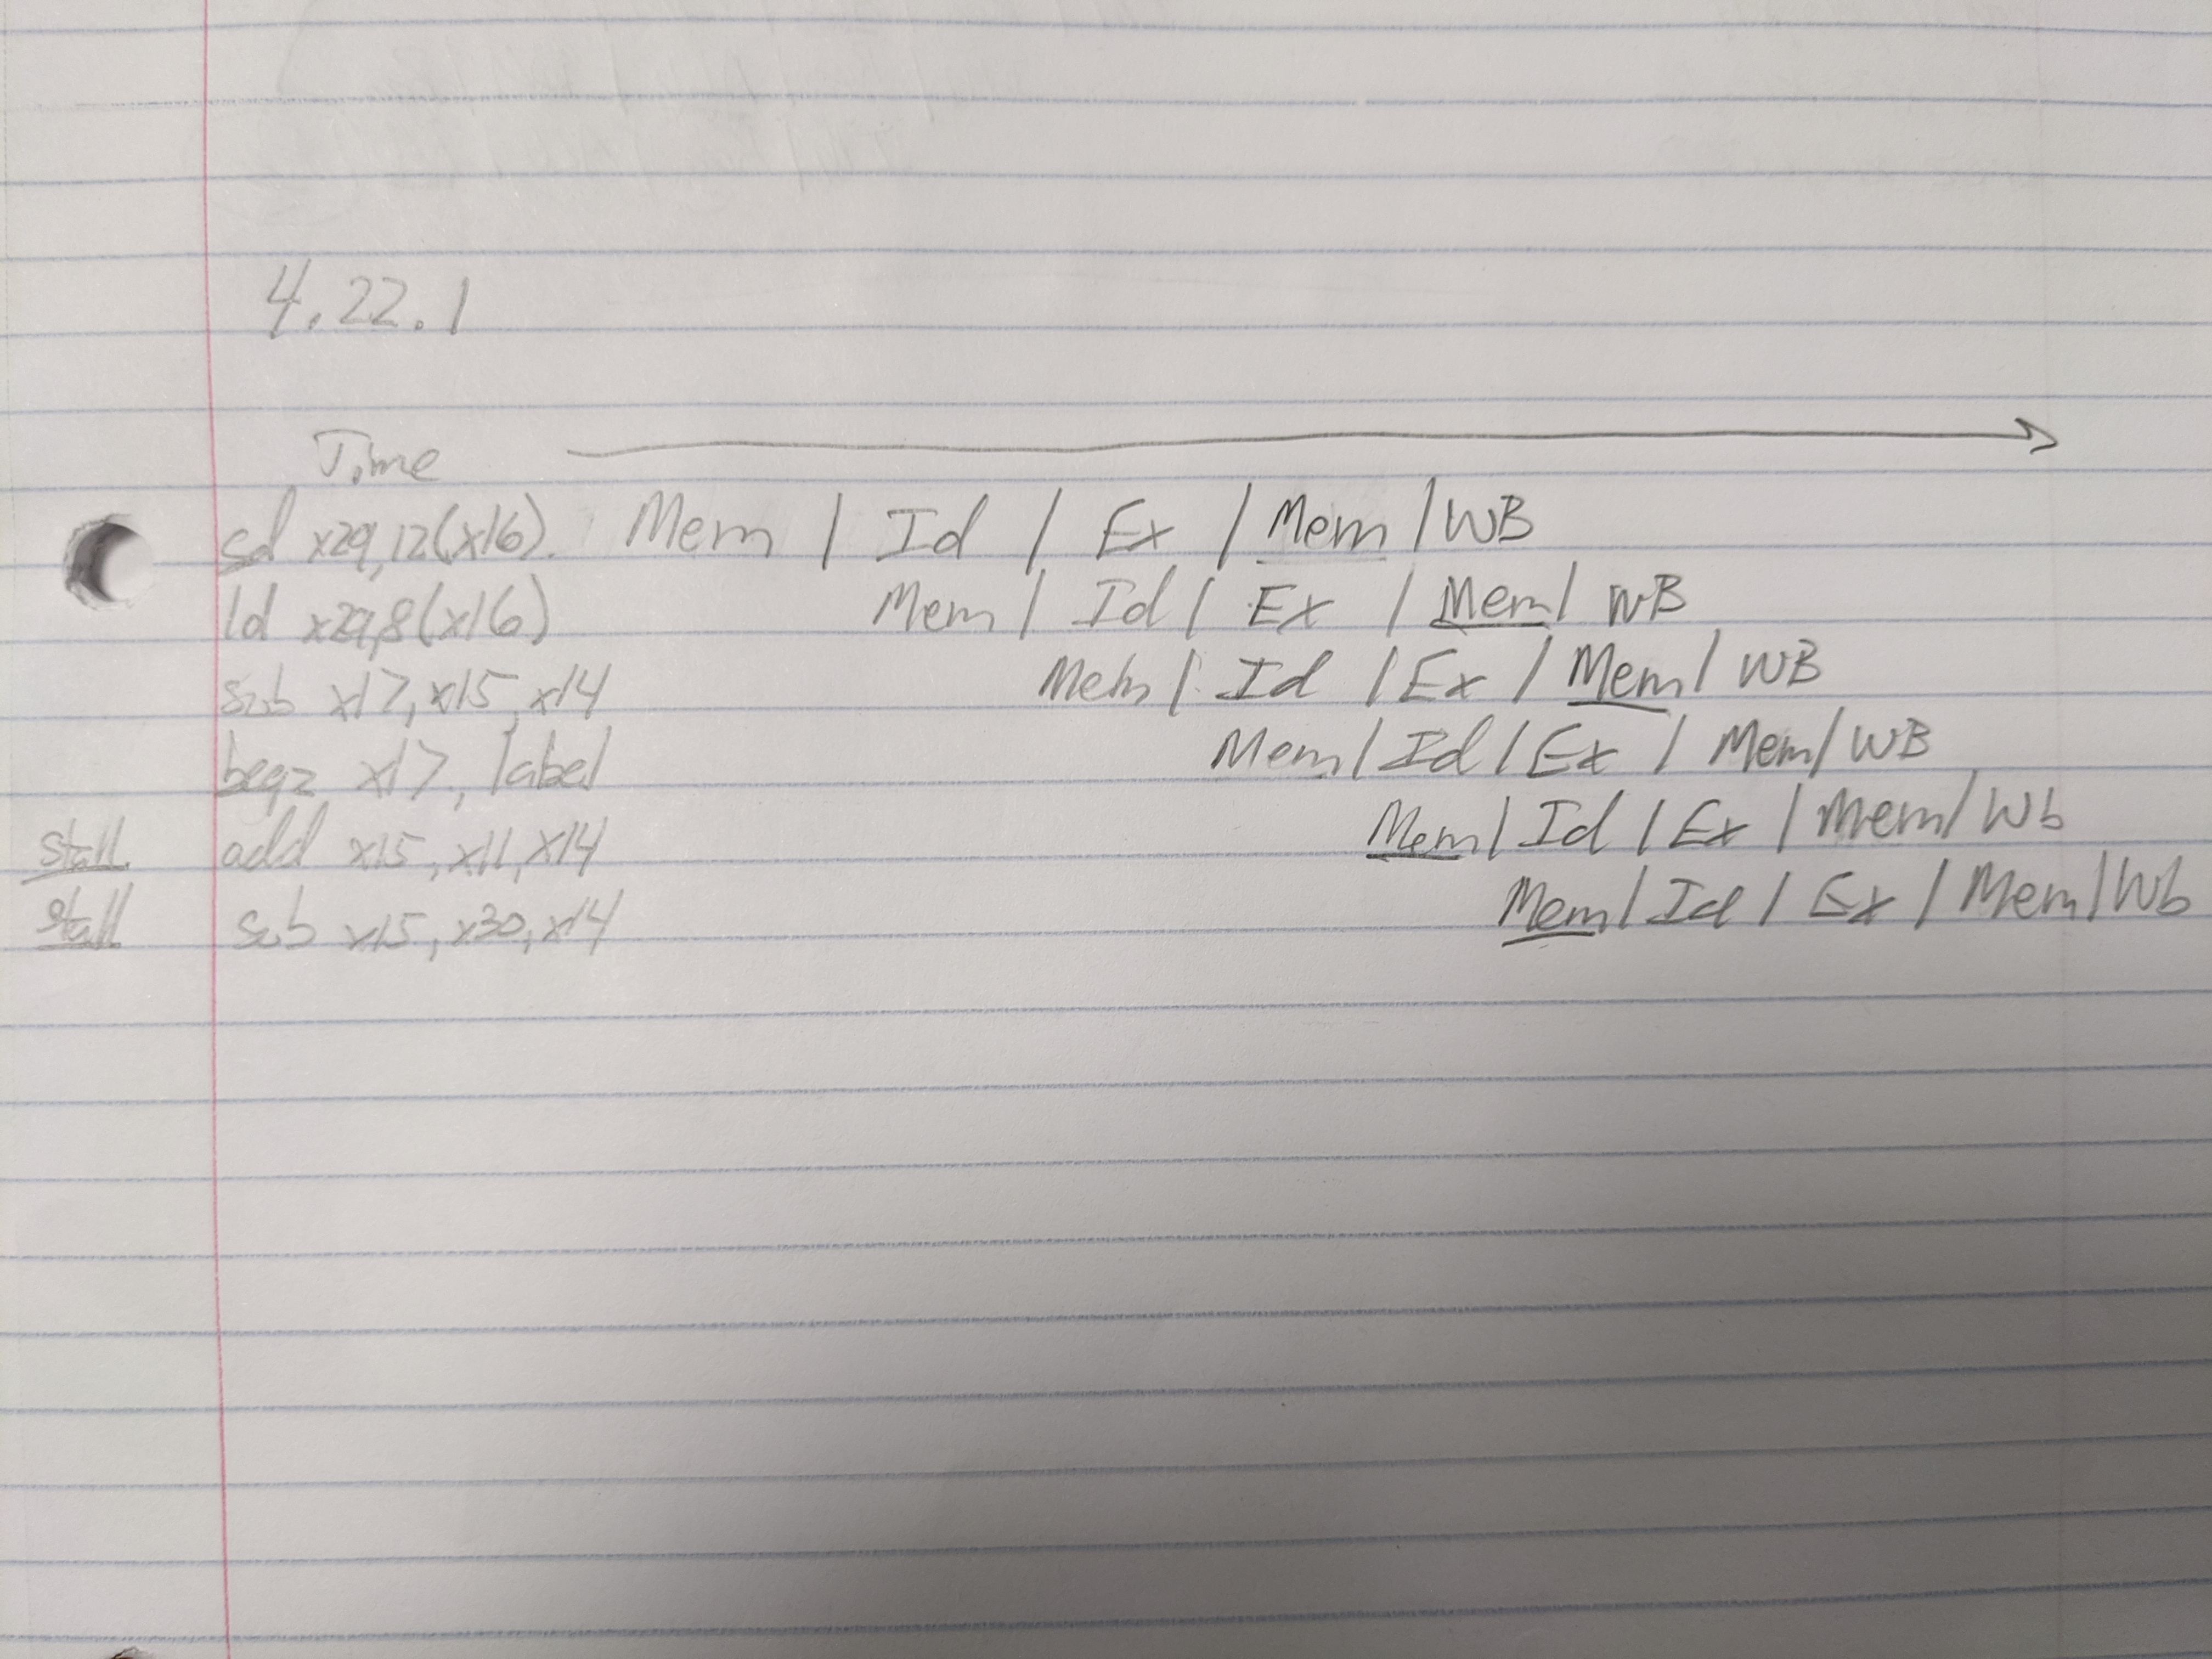 4.22.1
Time
sd x29,12(x16). Mem | Id | Ex | Mem | WB
ld x29,8(x16) Mem | Id | Ex | Mem | WB
sub x17, x15, x14 Mem | Id | Ex | Mem | WB
beqz x17, label Mem | Id | Ex | Mem | WB
stall add x15, x11, x14 Mem | Id | Ex | Mem | Wb
stall sub x15, x30, x14 Mem | Id | Ex | Mem | Wb